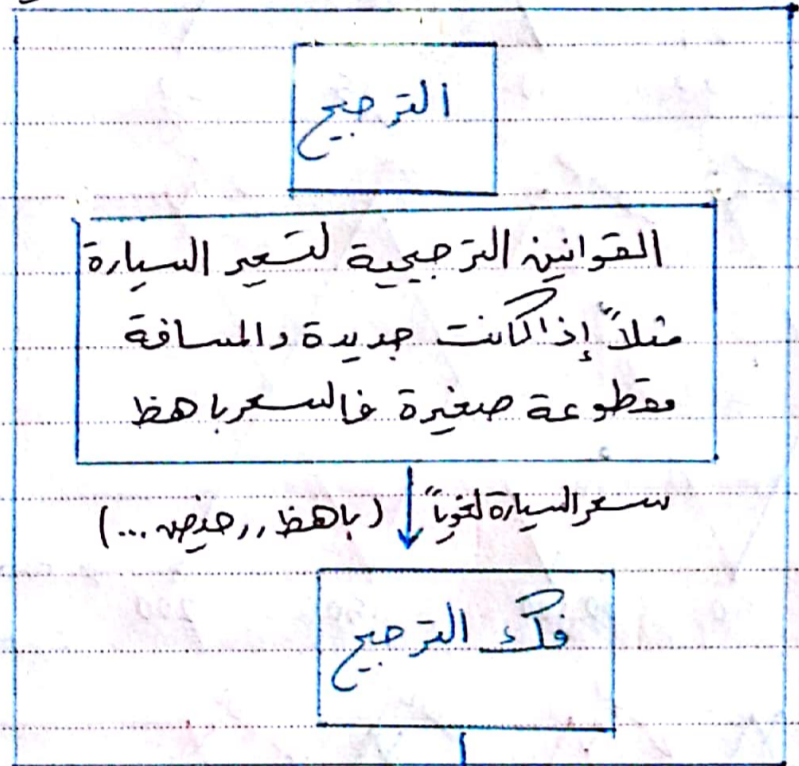 الترجيح
القوانين الترجيحية لتسعير السيارة
مثلاً إذا كانت جديدة والمسافة
مقطوعة صغيرة فالسعر باهظ
سعر السيارة لغوياً (باهظ، رخيص ...)
فك الترجيح